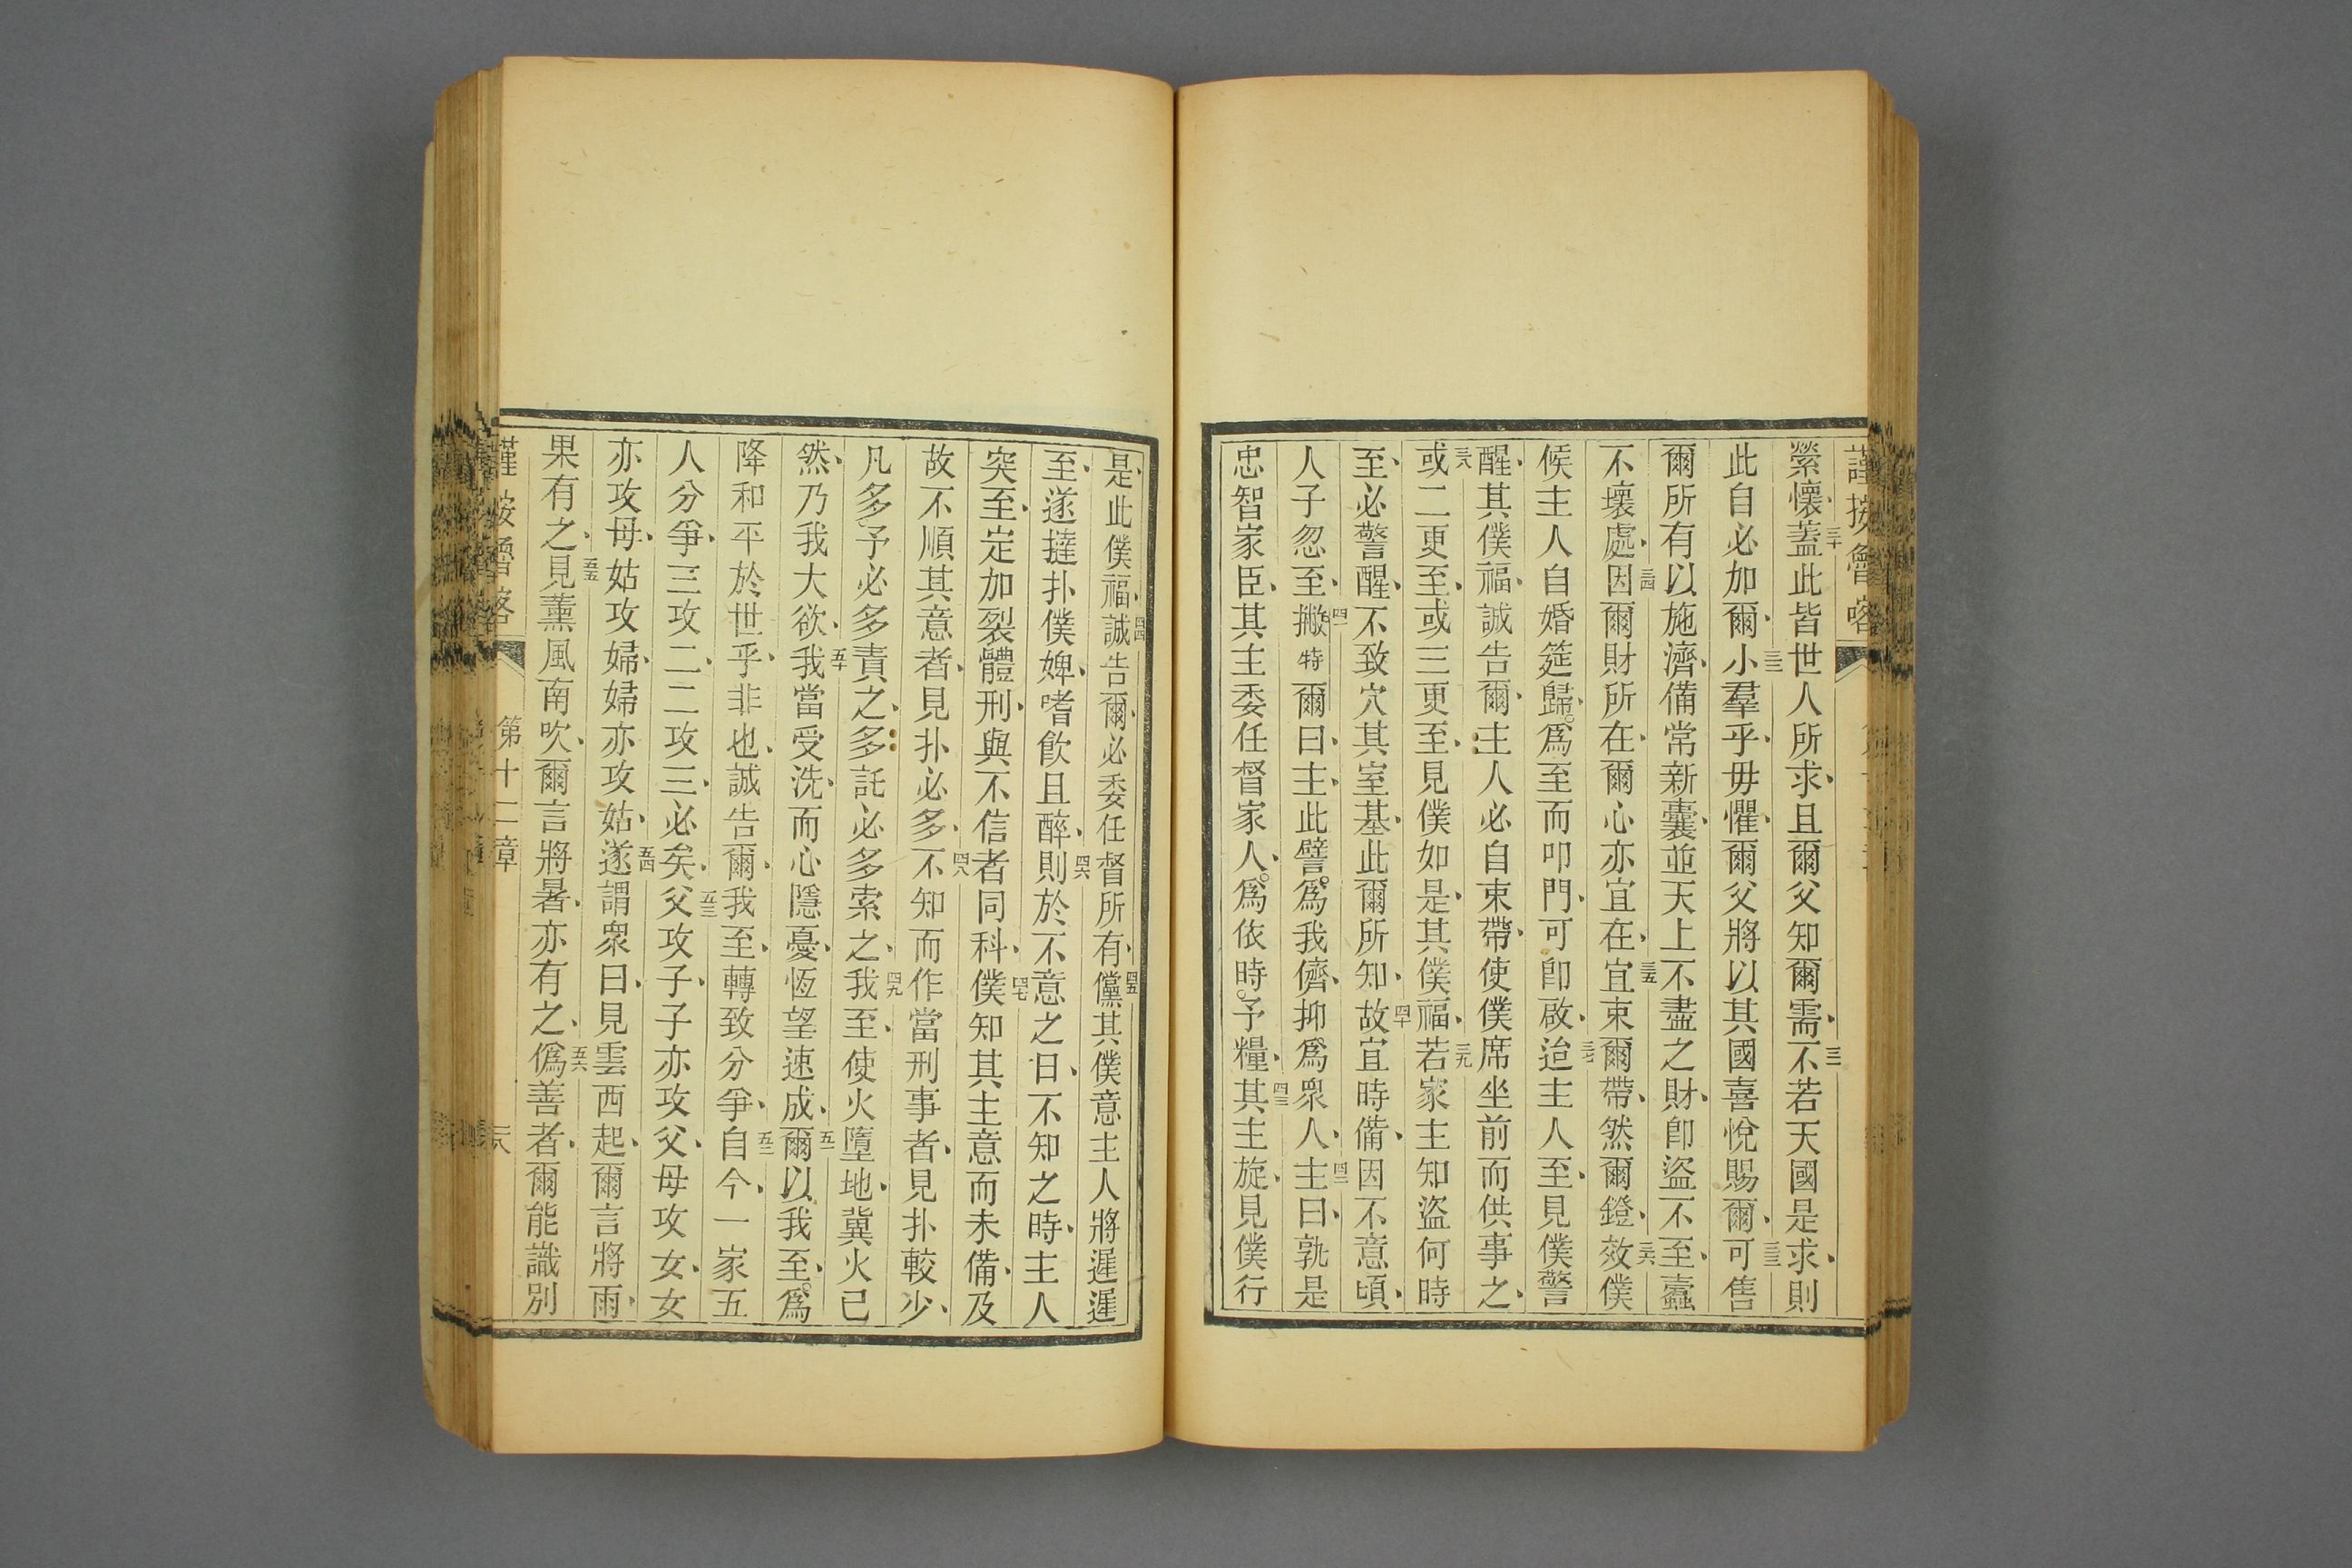 謹按魯喀
縈懷、蓋三十此皆世人所求、且爾父知爾需、三一不若天國是求、則
此自必加爾、三二小羣乎、毋懼、爾父將以其國喜悅賜爾、三三可售
爾所有以施濟、備常新囊、並天上不盡之財、卽盜不至、蠹
不壞處、三四因爾財所在、爾心亦宜在、三五宜束爾帶、然爾鐙、三六效僕
候主人自婚筵歸。爲至而叩門、可卽啟、三七迨主人至、見僕警
醒、其僕福、誠吿爾、主人必自束帶、使僕席坐前而供事之、
三八或二更至、或三更至、見僕如是、其僕福、三九若家主知盜何時
至、必警醒、不致穴其室基、此爾所知、四十故宜時備、因不意頃、
人子忽至、四一撇特爾曰、主、此譬。爲我儕、抑爲衆人、四二主曰、孰是
忠智家臣、其主委任督家人。爲依時。予糧、四三其主旋、見僕行
是、此僕福、四四誠吿爾、必委任督所有、四五儻其僕意主人將遲遲
至、遂撻扑僕婢、嗜飮且醉、四六則於不意之日、不知之時、主人
突至、定加裂體刑、與不信者同科、四七僕知其主意而未備、及
故不順其意者、見扑必多、四八不知而作當刑事者、見扑較少、
凡多予必多責之、多託必多索之、四九我至、使火墮地、冀火已
然、乃我大欲、五十我當受洗、而心隱憂、恆望速成、五一爾以我至。爲
降和平於世乎、非也、誠吿爾、我至、轉致分爭、五二自今、一家五
人分爭、三攻二、二攻三、必矣、五三父攻子、子亦攻父、母攻女、女
亦攻母、姑攻婦、婦亦攻姑、五四遂謂衆曰、見雲西起、爾言將雨、
果有之、五五見薰風南吹、爾言將暑、亦有之、五六僞善者、爾能識別
謹按魯喀
第十二章
二八